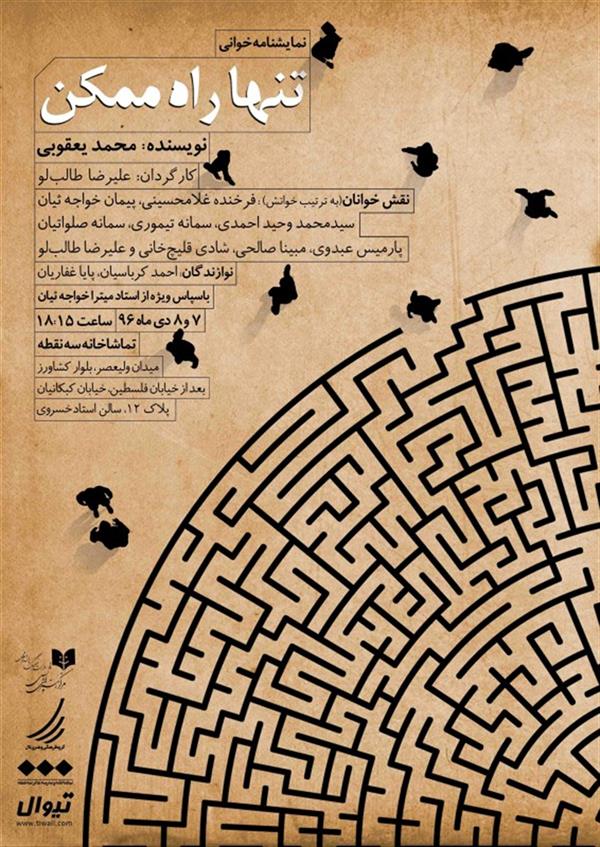 نمایشنامه‌خوانی
تنها راه ممکن
نویسنده: محمد یعقوبی
کارگردان: علیرضا طالب‌لو
نقش خوانان (به ترتیب خوانش): فرخنده غلامحسینی، پیمان خواجه ثیان
سیدمحمد وحید احمدی، سمانه تیموری، سمانه صلواتیان
پارمیس عبدوی، مبینا صالحی، شادی قلیچ‌خانی و علیرضا طالب‌لو
نوازندگان: احمد کرباسیان، پایا غفاریان
باسپاس ویژه از استاد میترا خواجه ثیان
۷ و ۸ دی ماه ۹۶ ساعت ۱۸:۱۵
تماشاخانه سه نقطه
میدان ولیعصر، بلوار کشاورز
بعد از خیابان فلسطین، خیابان کبکانیان
پلاک ۱۲، سالن استاد خسروی
تیوال
www.tiwall.com